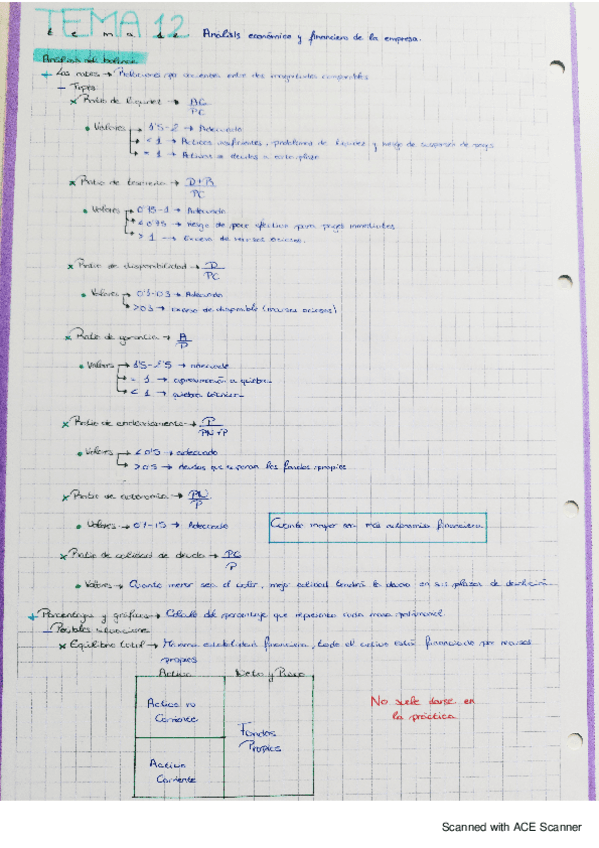 TEMA 12
tema 12 Análisis económico y financiero de la empresa.
Análisis del balance
+ Los ratios → Relaciones por cociente entre dos magnitudes comparables
– Tipos
x Ratio de liquidez → AC
PC
• Valores → 1'5-2 → Adecuado
→ < 1 → Activos insuficientes, problemas de liquidez y riesgo de suspensión de pagos
→ = 1 → Activos = deudas a corto plazo
x Ratio de tesorería → D+R
PC
• Valores → 0'75-1 → Adecuado
→ < 0'75 → riesgo de poco efectivo para pagos inmediatos
→ > 1 → Exceso de recursos ociosos.
x Ratio de disponibilidad → D
PC
• Valores → 0'1-0'3 → Adecuado
→ >0'3 → exceso de disponible (recursos ociosos)
x Ratio de garantía → A
P
• Valores → 1'5-2'5 → adecuado
→ = 1 → aproximación a quiebra
→ < 1 → quiebra técnica
x Ratio de endeudamiento → P
PN+P
• Valores → < 0'5 → adecuado
→ > 0'5 → deudas que superan los fondos propios
x Ratio de autonomía → PN
P
• Valores → → Adecuado
Cuanto mayor sea más autonomía financiera
x Ratio de calidad de deuda → PC
P
• Valores → Cuanto menor sea el valor, mejor calidad tendrá la deuda en sus plazos de devolución.
+ Porcentajes y gráficos → Cálculo del porcentaje que representa cada masa patrimonial.
– Posibles situaciones
x Equilibrio total → Máxima estabilidad financiera, todo el activo está financiado por recursos
propios
Activo Neto y Pasivo
Activo no
Corriente
Fondos
Propios
Activo
Corriente
No suele darse en
la práctica
Scanned with ACE Scanner